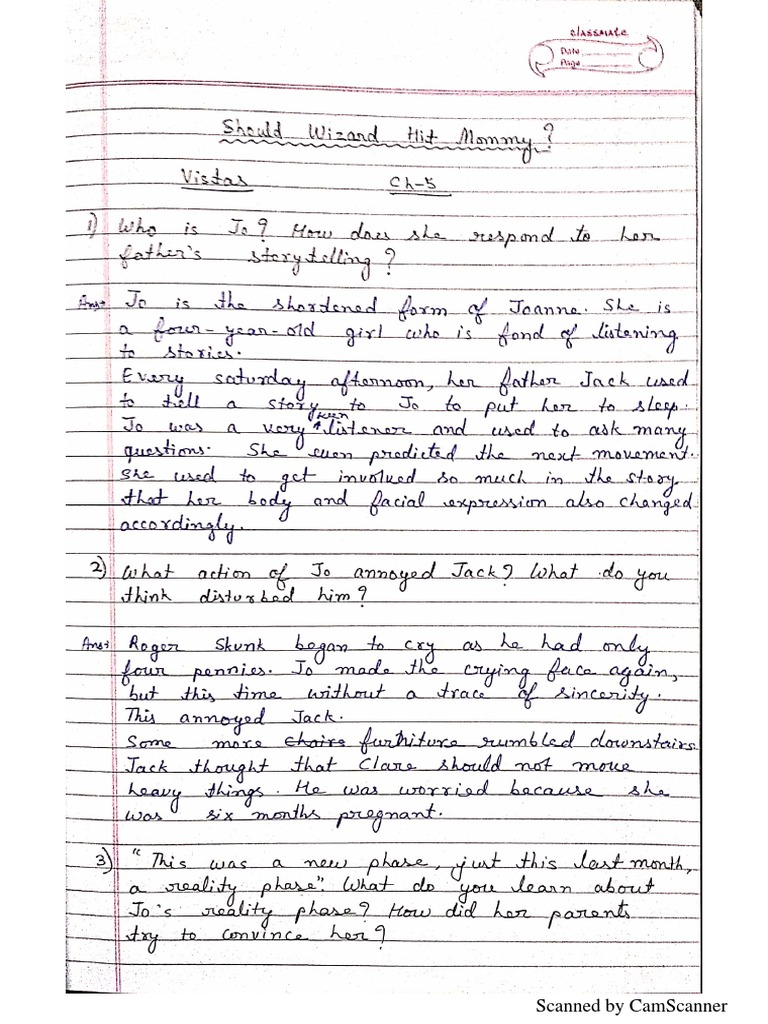 classmate
Date
Page
Should Wizard Hit Mommy?
Vistas Ch-5
1) Who is Jo? How does she respond to her
father's storytelling?
Ans: Jo is the shortened form of Joanne. She is
a four-year-old girl who is fond of listening
to stories.
Every saturday afternoon, her father Jack used
to tell a story to Jo to put her to sleep.
Jo was a very keen listener and used to ask many
questions. She even predicted the next movement.
She used to get involved so much in the story
that her body and facial expression also changed
accordingly.
2) What action of Jo annoyed Jack? What do you
think disturbed him?
Ans: Roger Skunk began to cry as he had only
four pennies. Jo made the crying face again,
but this time without a trace of sincerity.
This annoyed Jack.
Some more chairs furniture rumbled downstairs
Jack thought that Clare should not move
heavy things. He was worried because she
was six months pregnant.
3) "This was a new phase, just this last month,
a reality phase". What do you learn about
Jo's reality phase? How did her parents
try to convince her?
Scanned by CamScanner